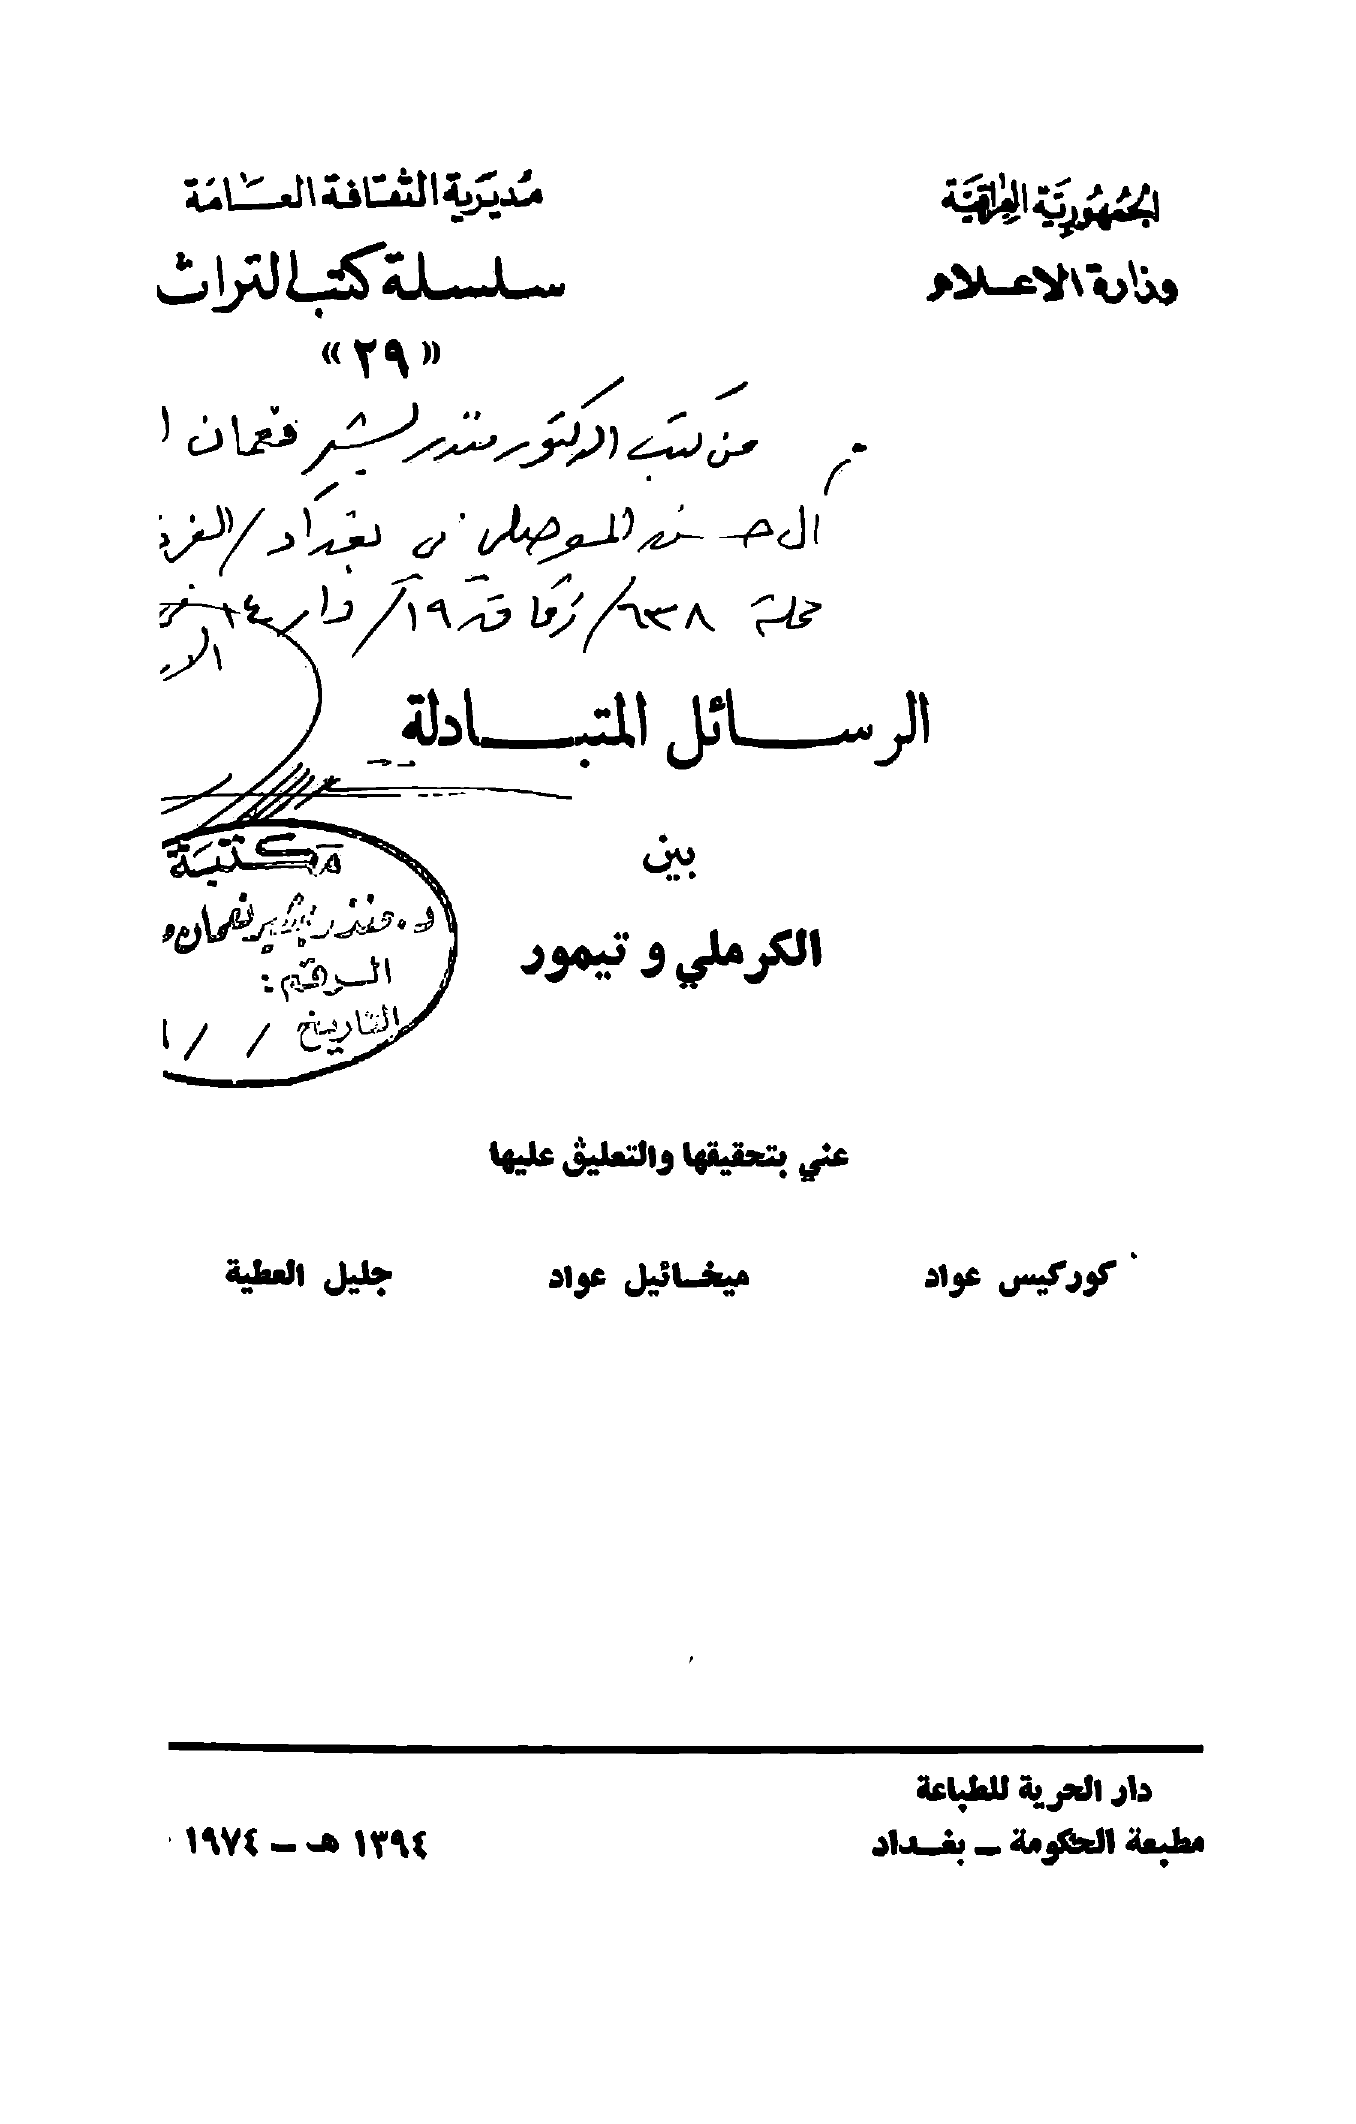 الجمهورية العراقية
وزارة الاعلام
مديرية الثقافة العامة
سلسلة كتب التراث
«٢٩»
من كتب الدكتور منذر بشير نعمان
الموصلي في بغداد /
محلة ٦٣٨/ زقاق ١٩/ دار ١٤
الرسائل المتبادلة
بين
الكرملي و تيمور
مكتبة
د. منذر بشير نعمان
الرقم :
التاريخ / /
عني بتحقيقها والتعليق عليها
كوركيس عواد
ميخائيل عواد
جليل العطية
دار الحرية للطباعة
مطبعة الحكومة – بغداد
١٣٩٤ هـ – ١٩٧٤